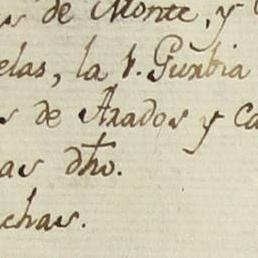 s de Monte, y
elas, la v. Guxbia
s de Axados y Ca
as dho.
chas.